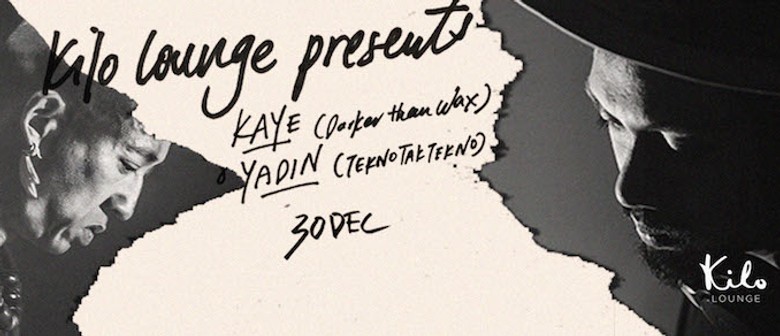 Kilo lounge presents
KAYE (Darker than Wax)
YADIN (TEKNOTAKTEKNO)
30 DEC
Kilo
LOUNGE